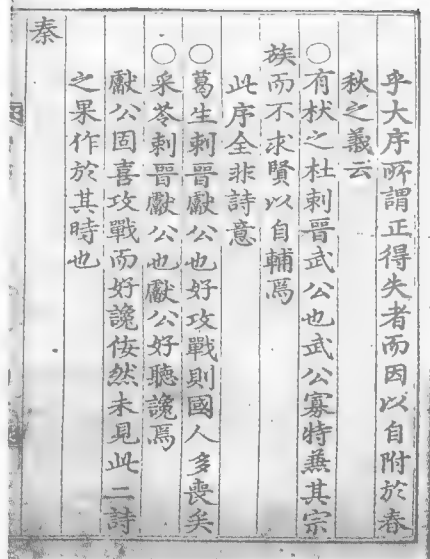 乎大序所謂正得失者而因以自附於春
秋之義云
○有杕之杜刺晉武公也武公寡特兼其宗
族而不求賢以自輔焉
此序全非詩意
○葛生刺晉獻公也好攻戰則國人多喪矣
○采苓刺晉獻公也獻公好聽讒焉
獻公固喜攻戰而好讒佞然未見此二詩
之果作於其時也
秦